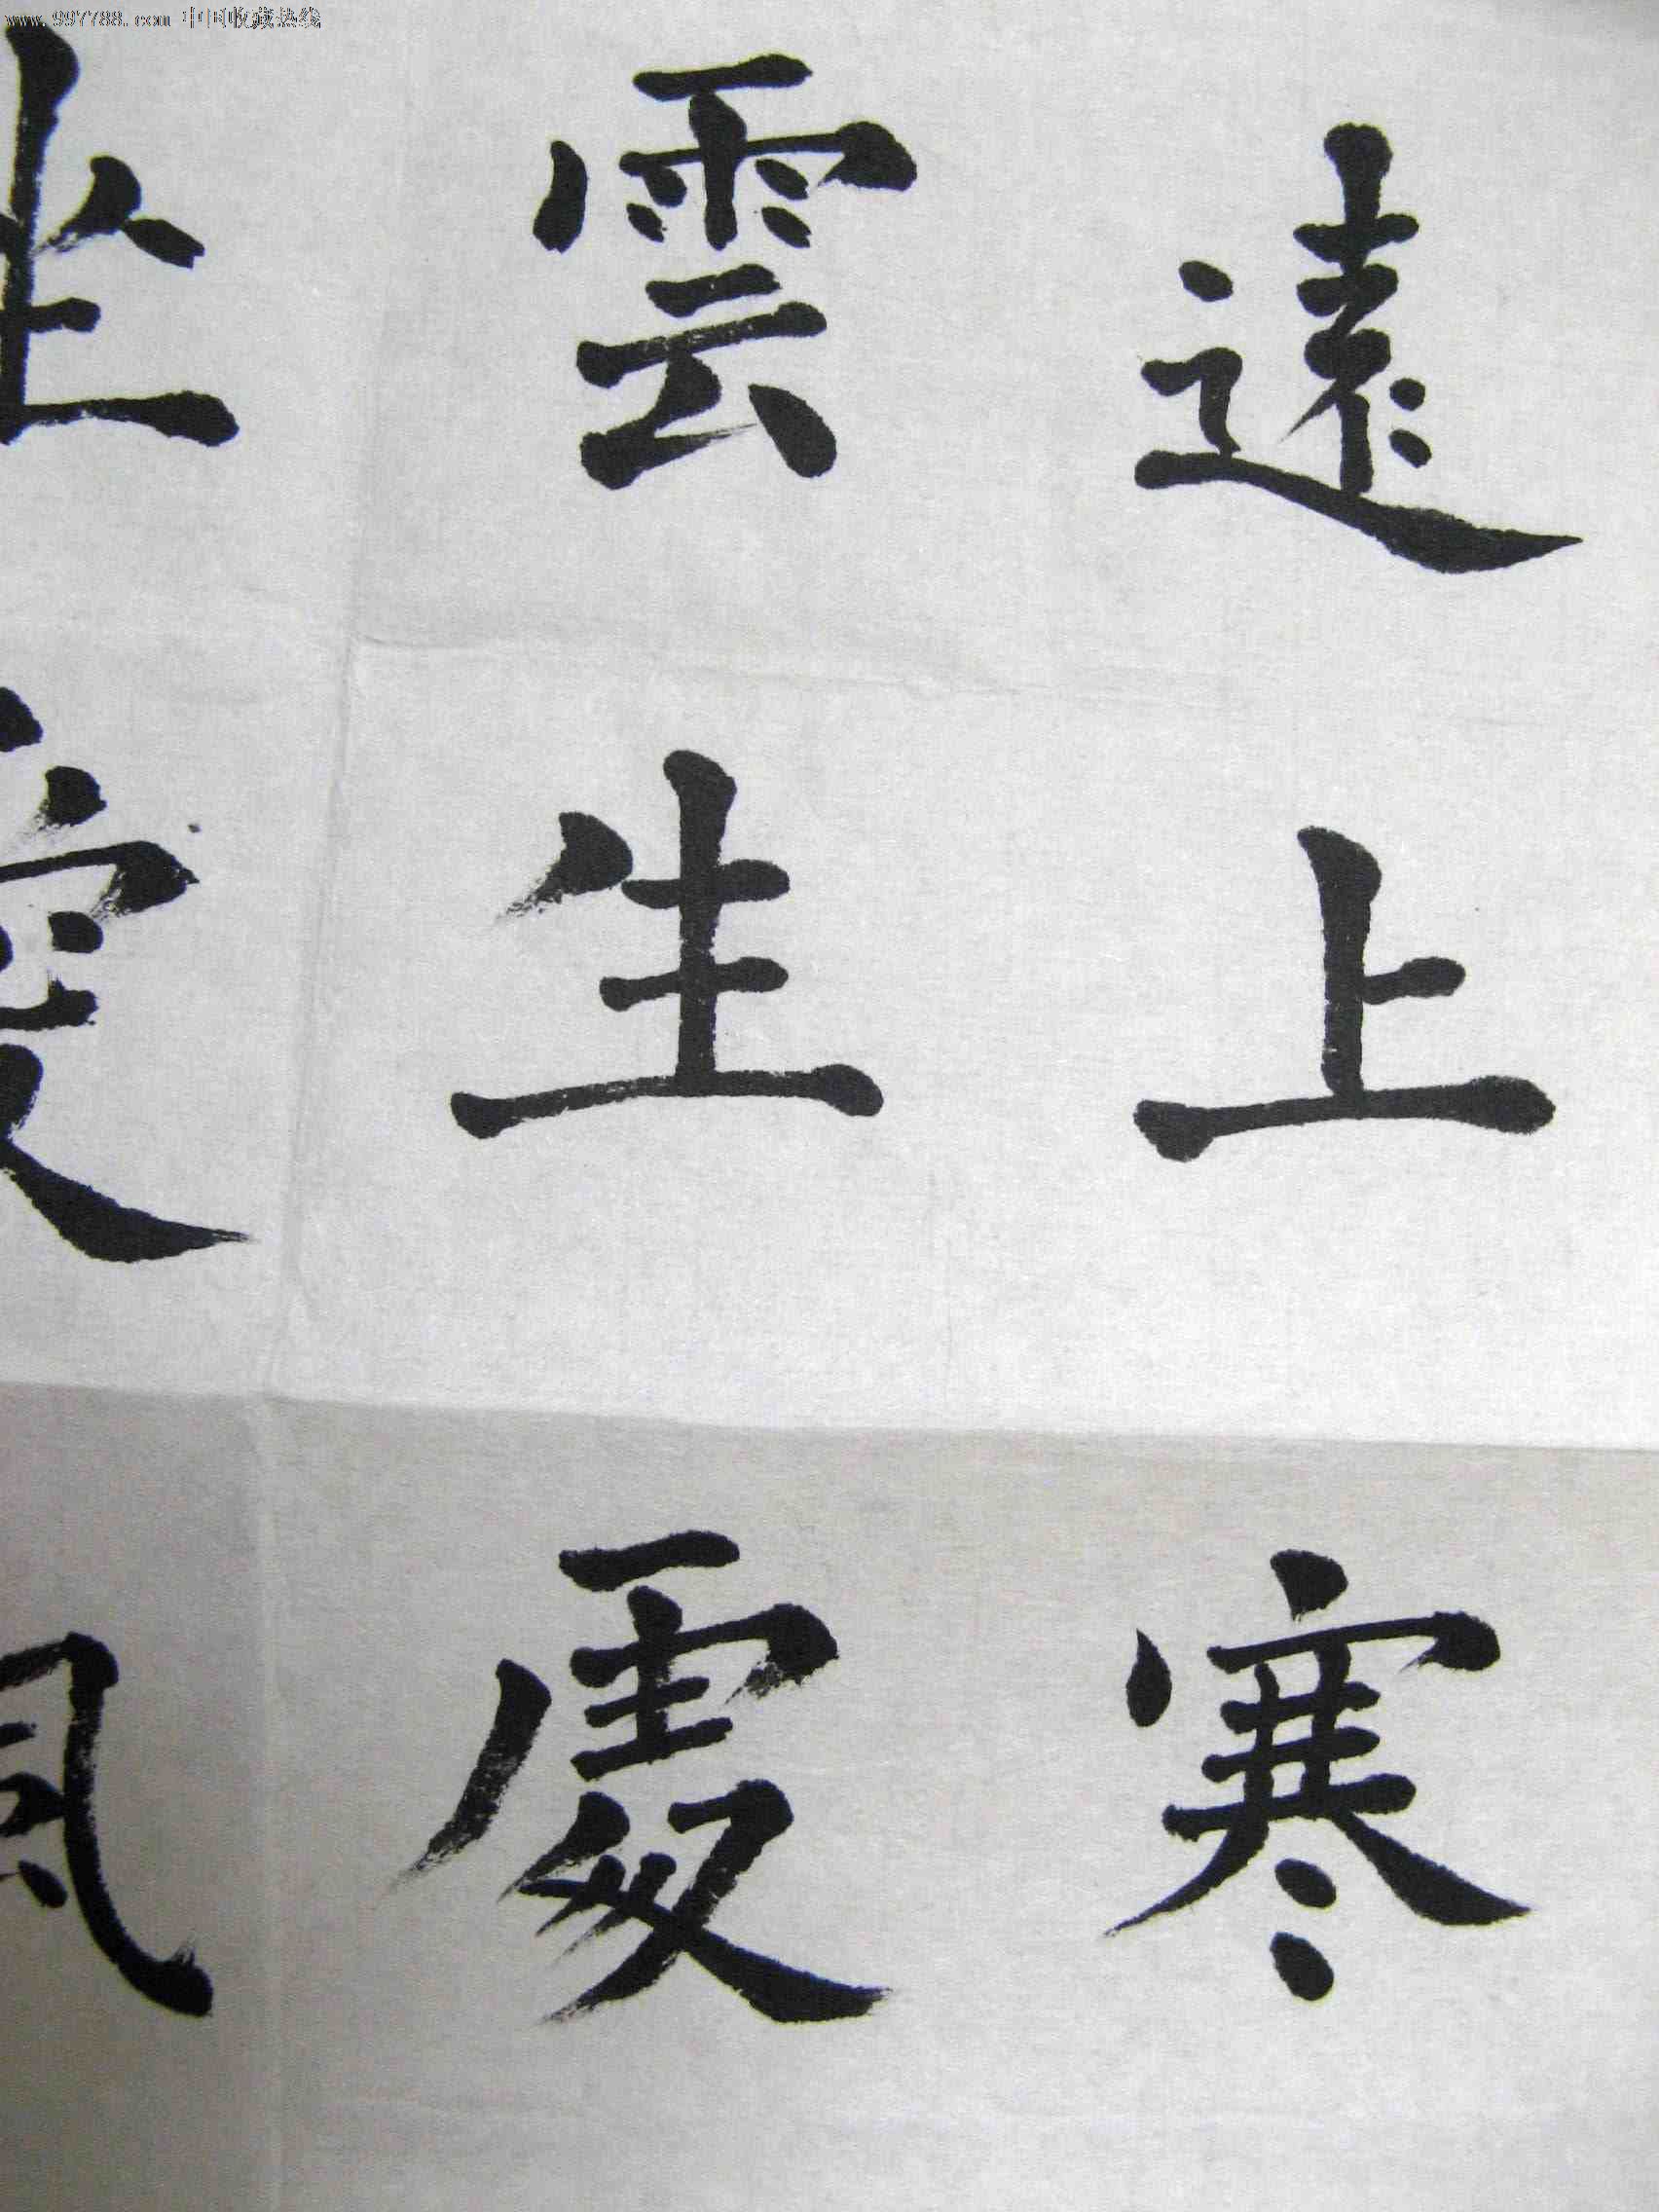 www.997788.com 中国收藏热线
遠上寒
雲生處
坐愛楓